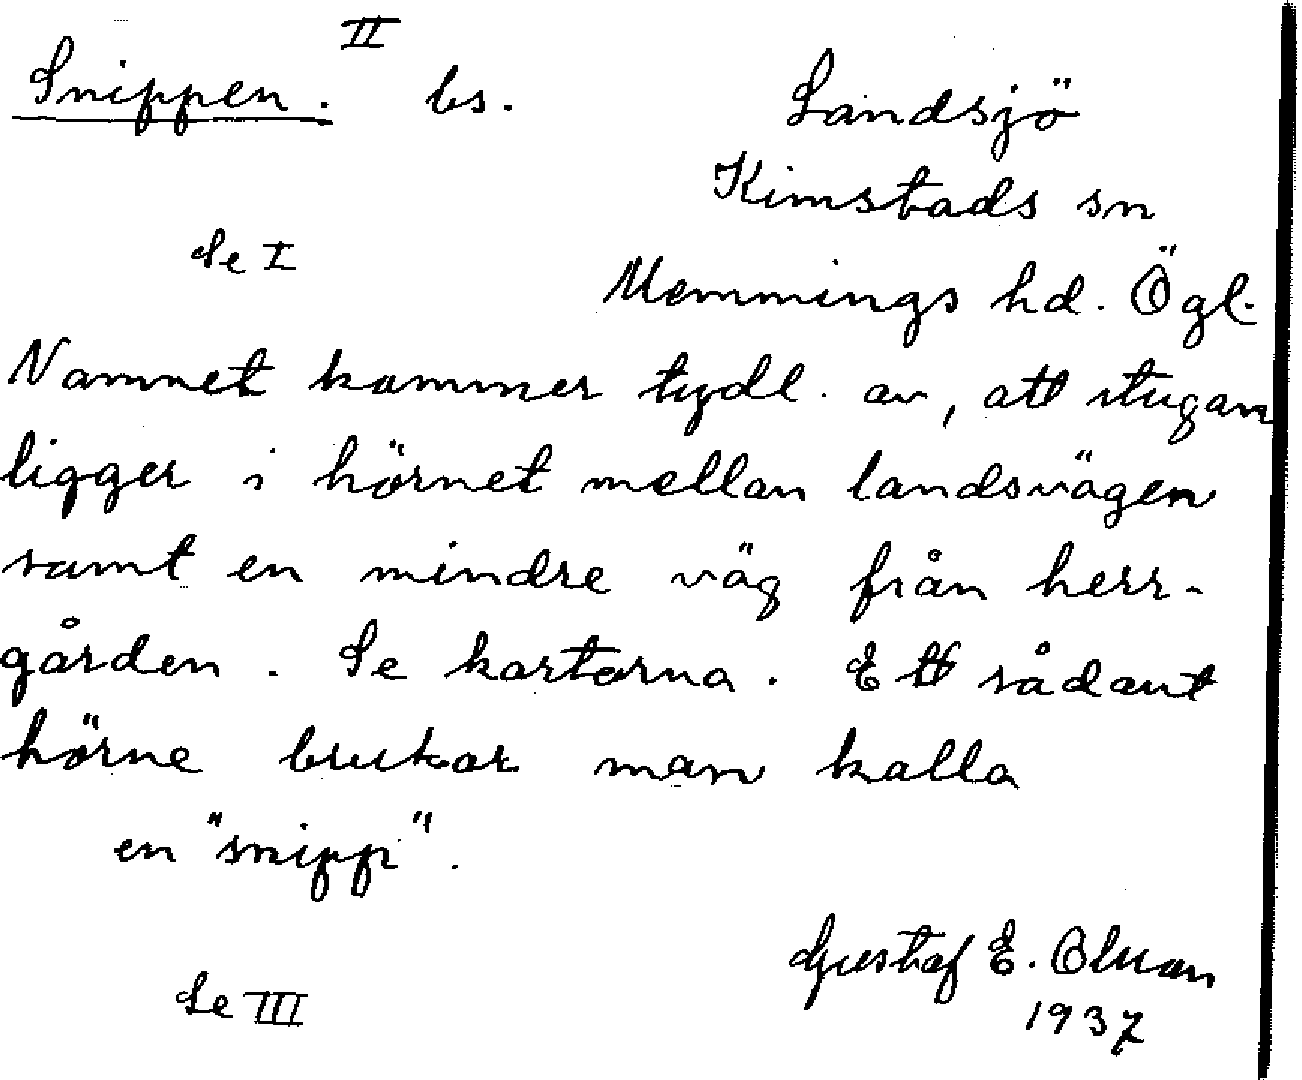 II
Snippen. bs.
Landsjö
Kimstads sn
Se I
Memmings hd. Ögl.
Namnet kommer tydl. av, att stugan
ligger i hörnet mellan landsvägen
samt en mindre väg från herr-
gården. Se kartorna. Ett sådant
hörne brukar man kalla
en "snipp".
Gustaf E. Olsson
1937
Se III